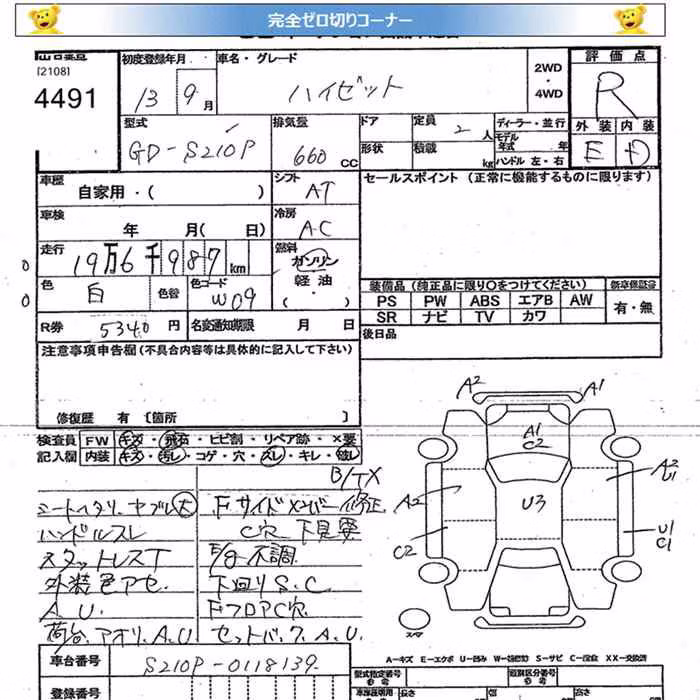 完全ゼロ切りコーナー
[2108]
4491
初度登録年月
13 9月
車名・グレード
ハイゼット
2WD
・
4WD
評価点
R
外装 内装
E D
型式
GD-S210P
排気量
660 CC
ドア
形状
定員 2 人
積載 kg
ディーラー・並行
モデル年式 年
ハンドル 左・右
車歴
自家用・( )
シフト
AT
セールスポイント (正常に機能するものに限ります)
車検
年 月(日)
冷房
AC
走行
19万6千987km
燃料
ガソリン
軽油
・( )
色
白
色替
色コード
W09
装備品 (純正品に限り○をつけてください)
PS PW ABS エアB AW
SR ナビ TV カワ
新車保証書
有・無
R券 5340 円
名変通知期限 月 日
後日品
注意事項申告欄 (不具合内容等は具体的に記入して下さい)
修復歴 有 〔箇所 〕
検査員記入欄
FW キズ・飛石・ヒビ割・リペア跡・×要
内装 キズ・汚レ・コゲ・穴・スレ・キレ・破レ
B/TX
シートヘタリ、ヤブレ大
Fサイドメンバー修正
ハンドルスレ
C穴 下見要
スタットレスT
E/g不調
外装色アセ
下回りS.C
A.U
FフロアC穴
荷台、アオリ、A.U
セットバック A.U.
A2 A1
A1
C2
A2
U1
A2
U3
C2
U1
C1
スペア
A-キズ E-エクボ U-凹み W-補修跡 S-サビ C-腐食 XX-交換済
車台番号
S210P-0118139
登録番号
型式指定番号
類別区分番号
長さ